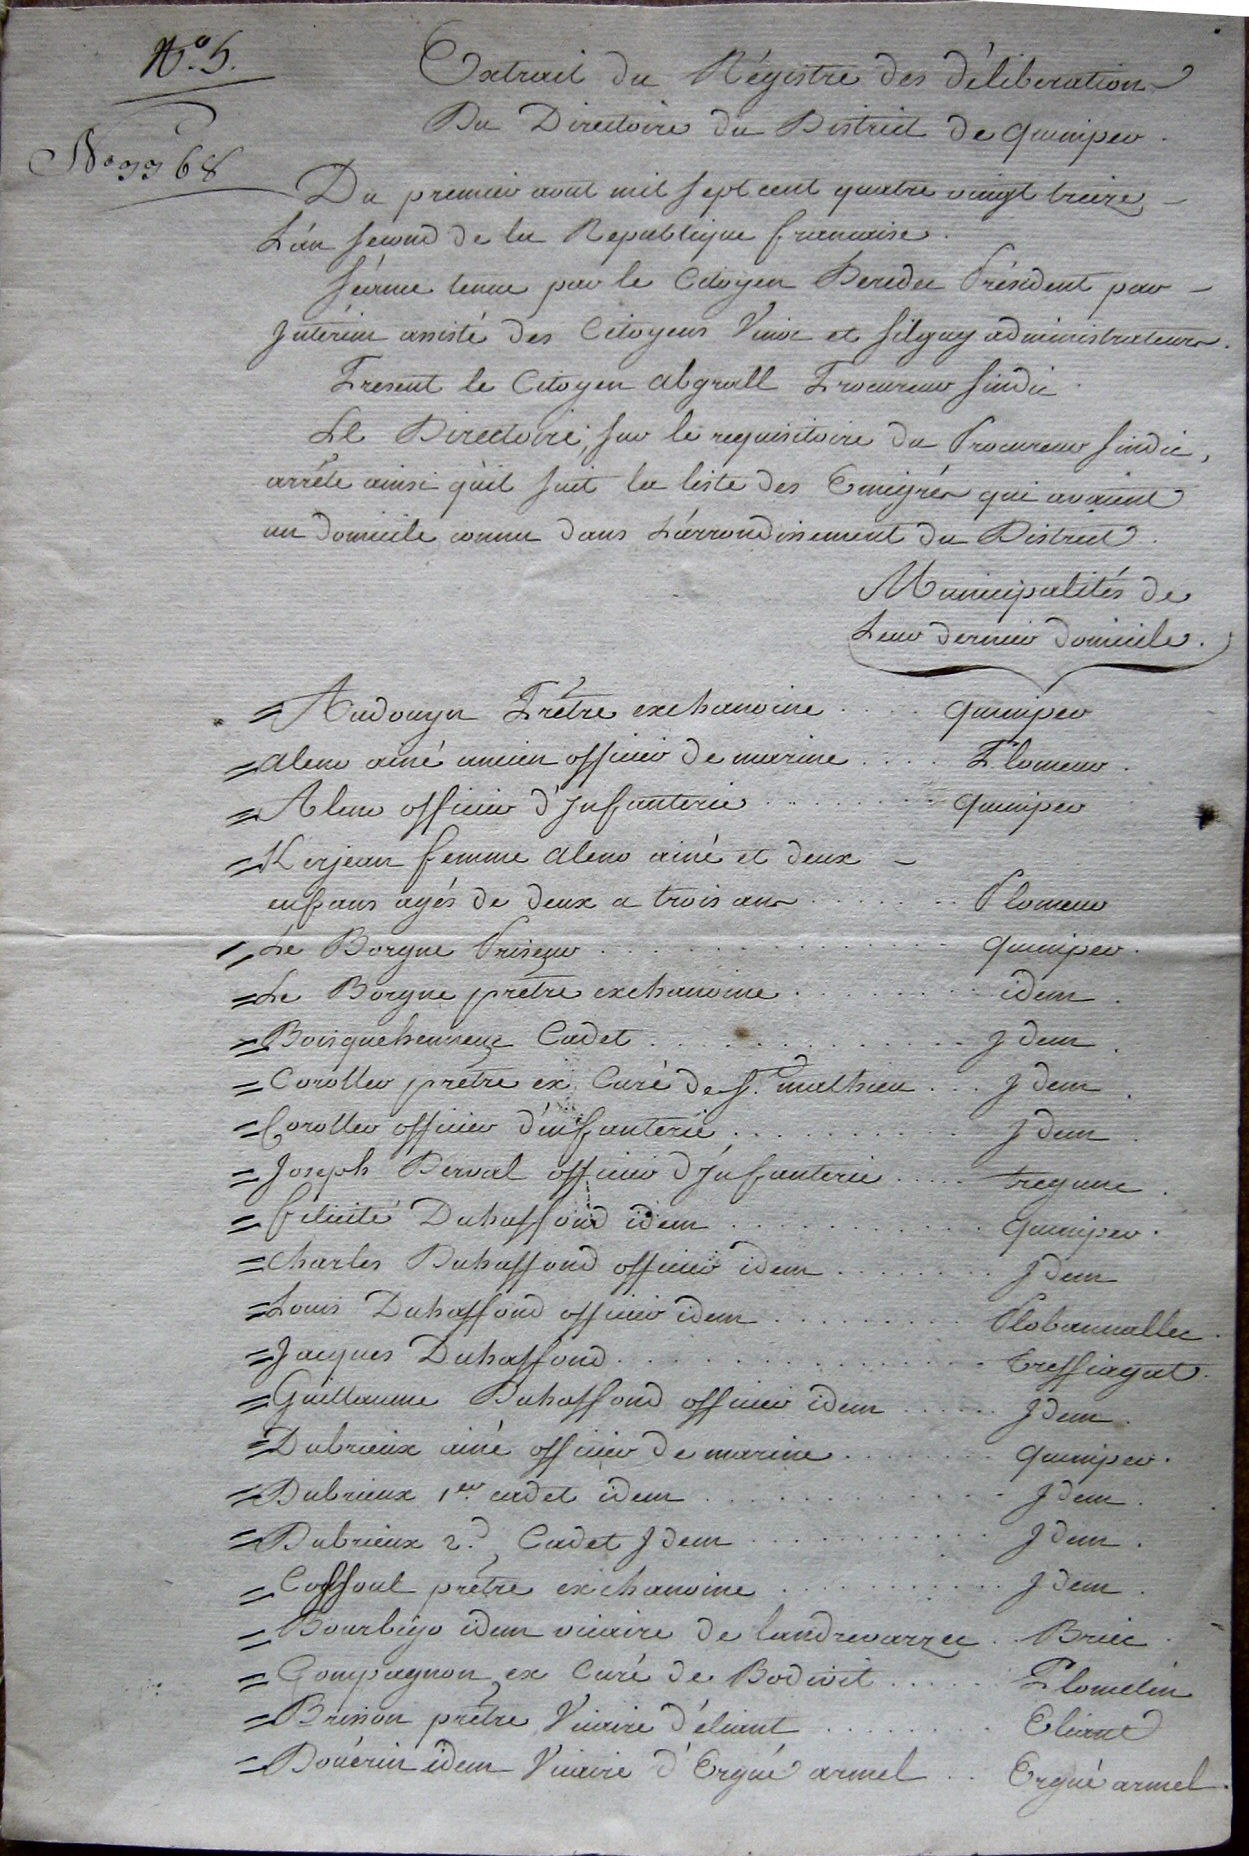 N.o 5.
Extrait du Régistre des déliberation
Du Directoire du District de quimper.
No 3368
Du premier aout mil sept cent quatre vingt treize,
L'án second de la Republique francaise.
Séance tenue par le Citoyen Deredec Président par
Jntérim assisté des Citoyens Vinoc et Silguy administrateurs.
Présent le Citoyen abgrall Procureur sindic.
Le Directoire, sur le requisitoire du Procureur sindic,
arrête ainsi qúil suit la liste des Emigrés qui avaient
un domicile connu dans L'árrondissement du District.
Municipalités de
Leur dernier domicile.
= Audouyn Prêtre exchanoine .... quimper
= aleno ainé ancien officier de marine .... Plomeur.
= Aleno officier d'Jnfanterie ........ quimper
= Kerjean femme aleno ainé et deux -
enfans agés de deux a trois ans ....... Plomeur
= Le Borgne Priseur ............ quimper.
= Le Borgne prêtre exchanoine ........ idem.
= Boisguehenneuc Cadet ............ Jdem.
= Coroller prêtre ex Curé de St. mathieu ... Jdem.
= Coroller officier d'infanterie .......... Jdem.
= Joseph Derval officier d'Jnfanterie ..... tregunc.
= félicité Duhaffond idem ........... quimper.
= Charles Duhaffond officier idem ........ Jdem
= Louis Duhaffond officier idem ......... Plobannallec.
= Jacques Duhaffond .............. treffiagat.
= Guillaume Duhaffond officier idem ..... Jdem.
= Dubrieux ainé officier de marine ....... quimper.
= Dubrieux 1er. cadet idem ............ Jdem.
= Dubrieux 2d. Cadet Jdem .......... Jdem.
= Cossoul prêtre exchanoine .......... Jdem.
= Bourbigo idem vicaire de landrevarzec .. Briec.
= Gompagnon ex Curé de Bodivit ..... Plomelin
= Brisson prêtre Vicaire d'éliant ........ Eliant
= Bouérin idem Vicaire d'Ergué armel .. Ergué armel.